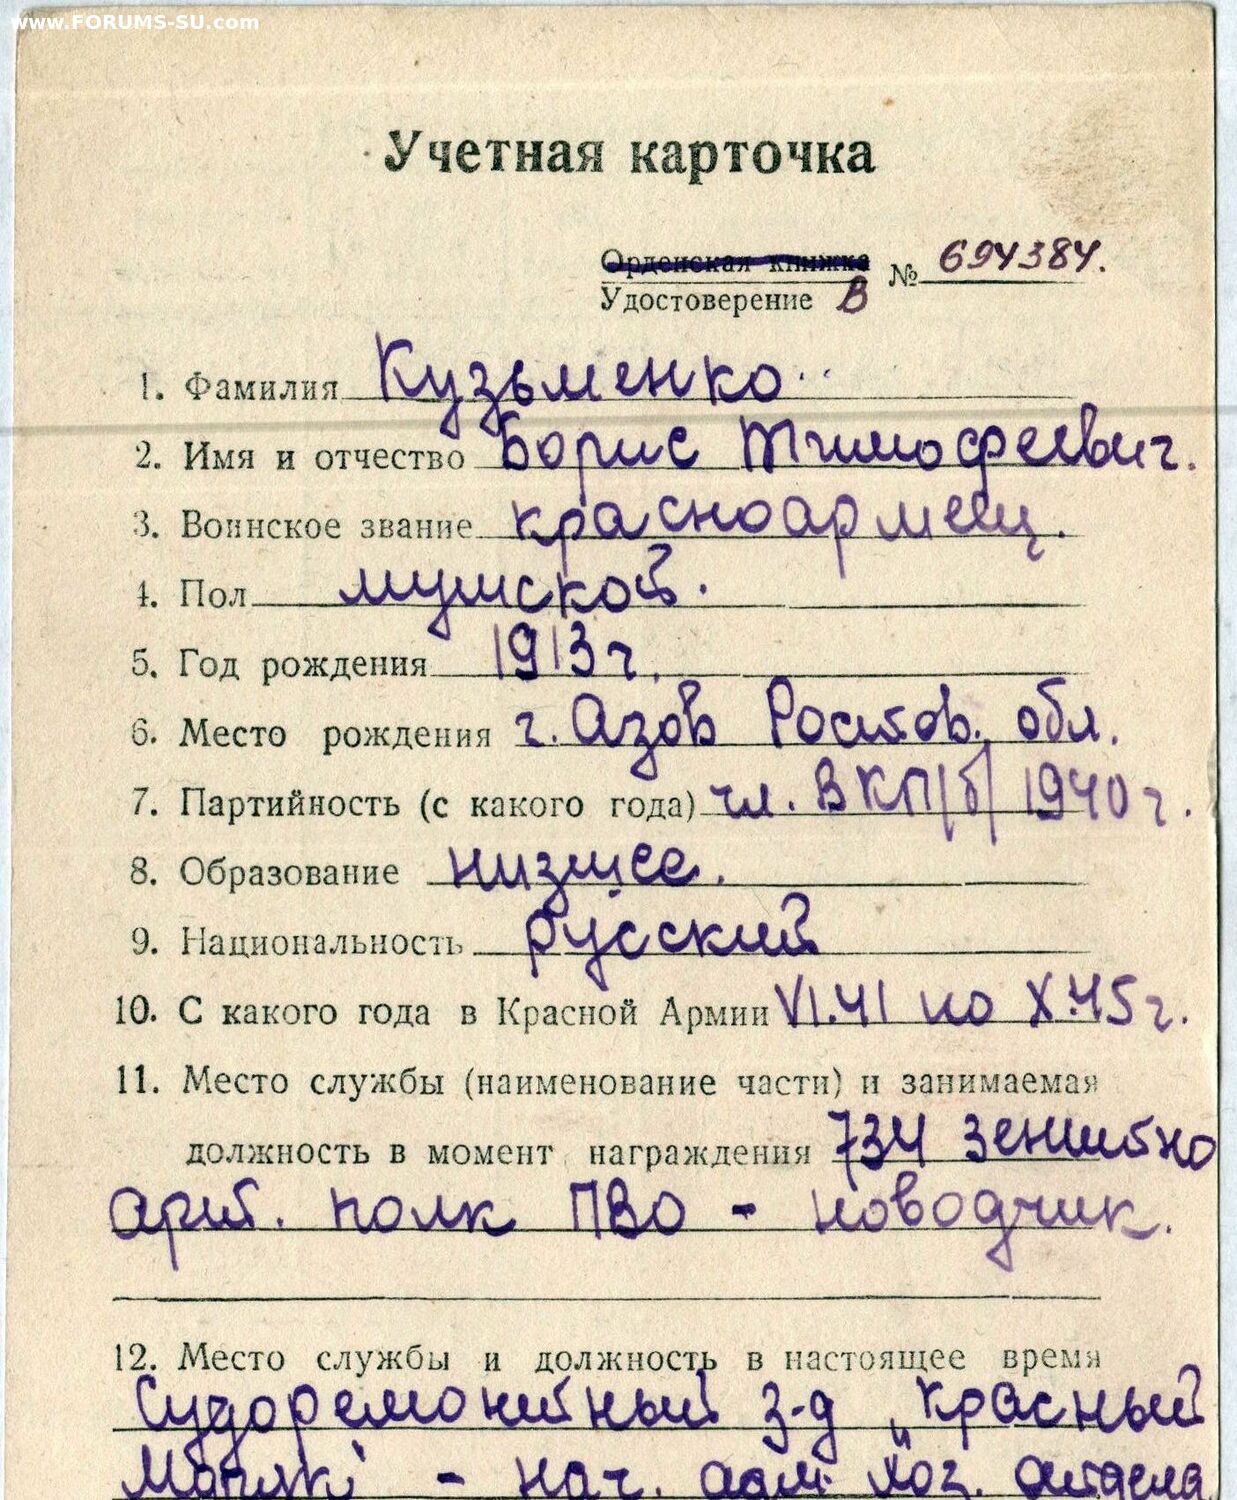 www.FORUMS-SU.com
Учетная карточка
Орденская книжка
Удостоверение В № 694384.
1. Фамилия Кузьменко
2. Имя и отчество Борис Тимофеевич.
3. Воинское звание красноармеец.
4. Пол мужской.
5. Год рождения 1913 г.
6. Место рождения г. Азов Ростов. обл.
7. Партийность (с какого года) чл. ВКП/б/ 1940 г.
8. Образование низшее.
9. Национальность русский
10. С какого года в Красной Армии VI.41 по X.45 г.
11. Место службы (наименование части) и занимаемая
должность в момент награждения 734 зенитно
арт. полк ПВО - наводчик.
12. Место службы и должность в настоящее время
Судоремонтный з-д „Красный
Маяк" - нач. адм. хоз. отдела